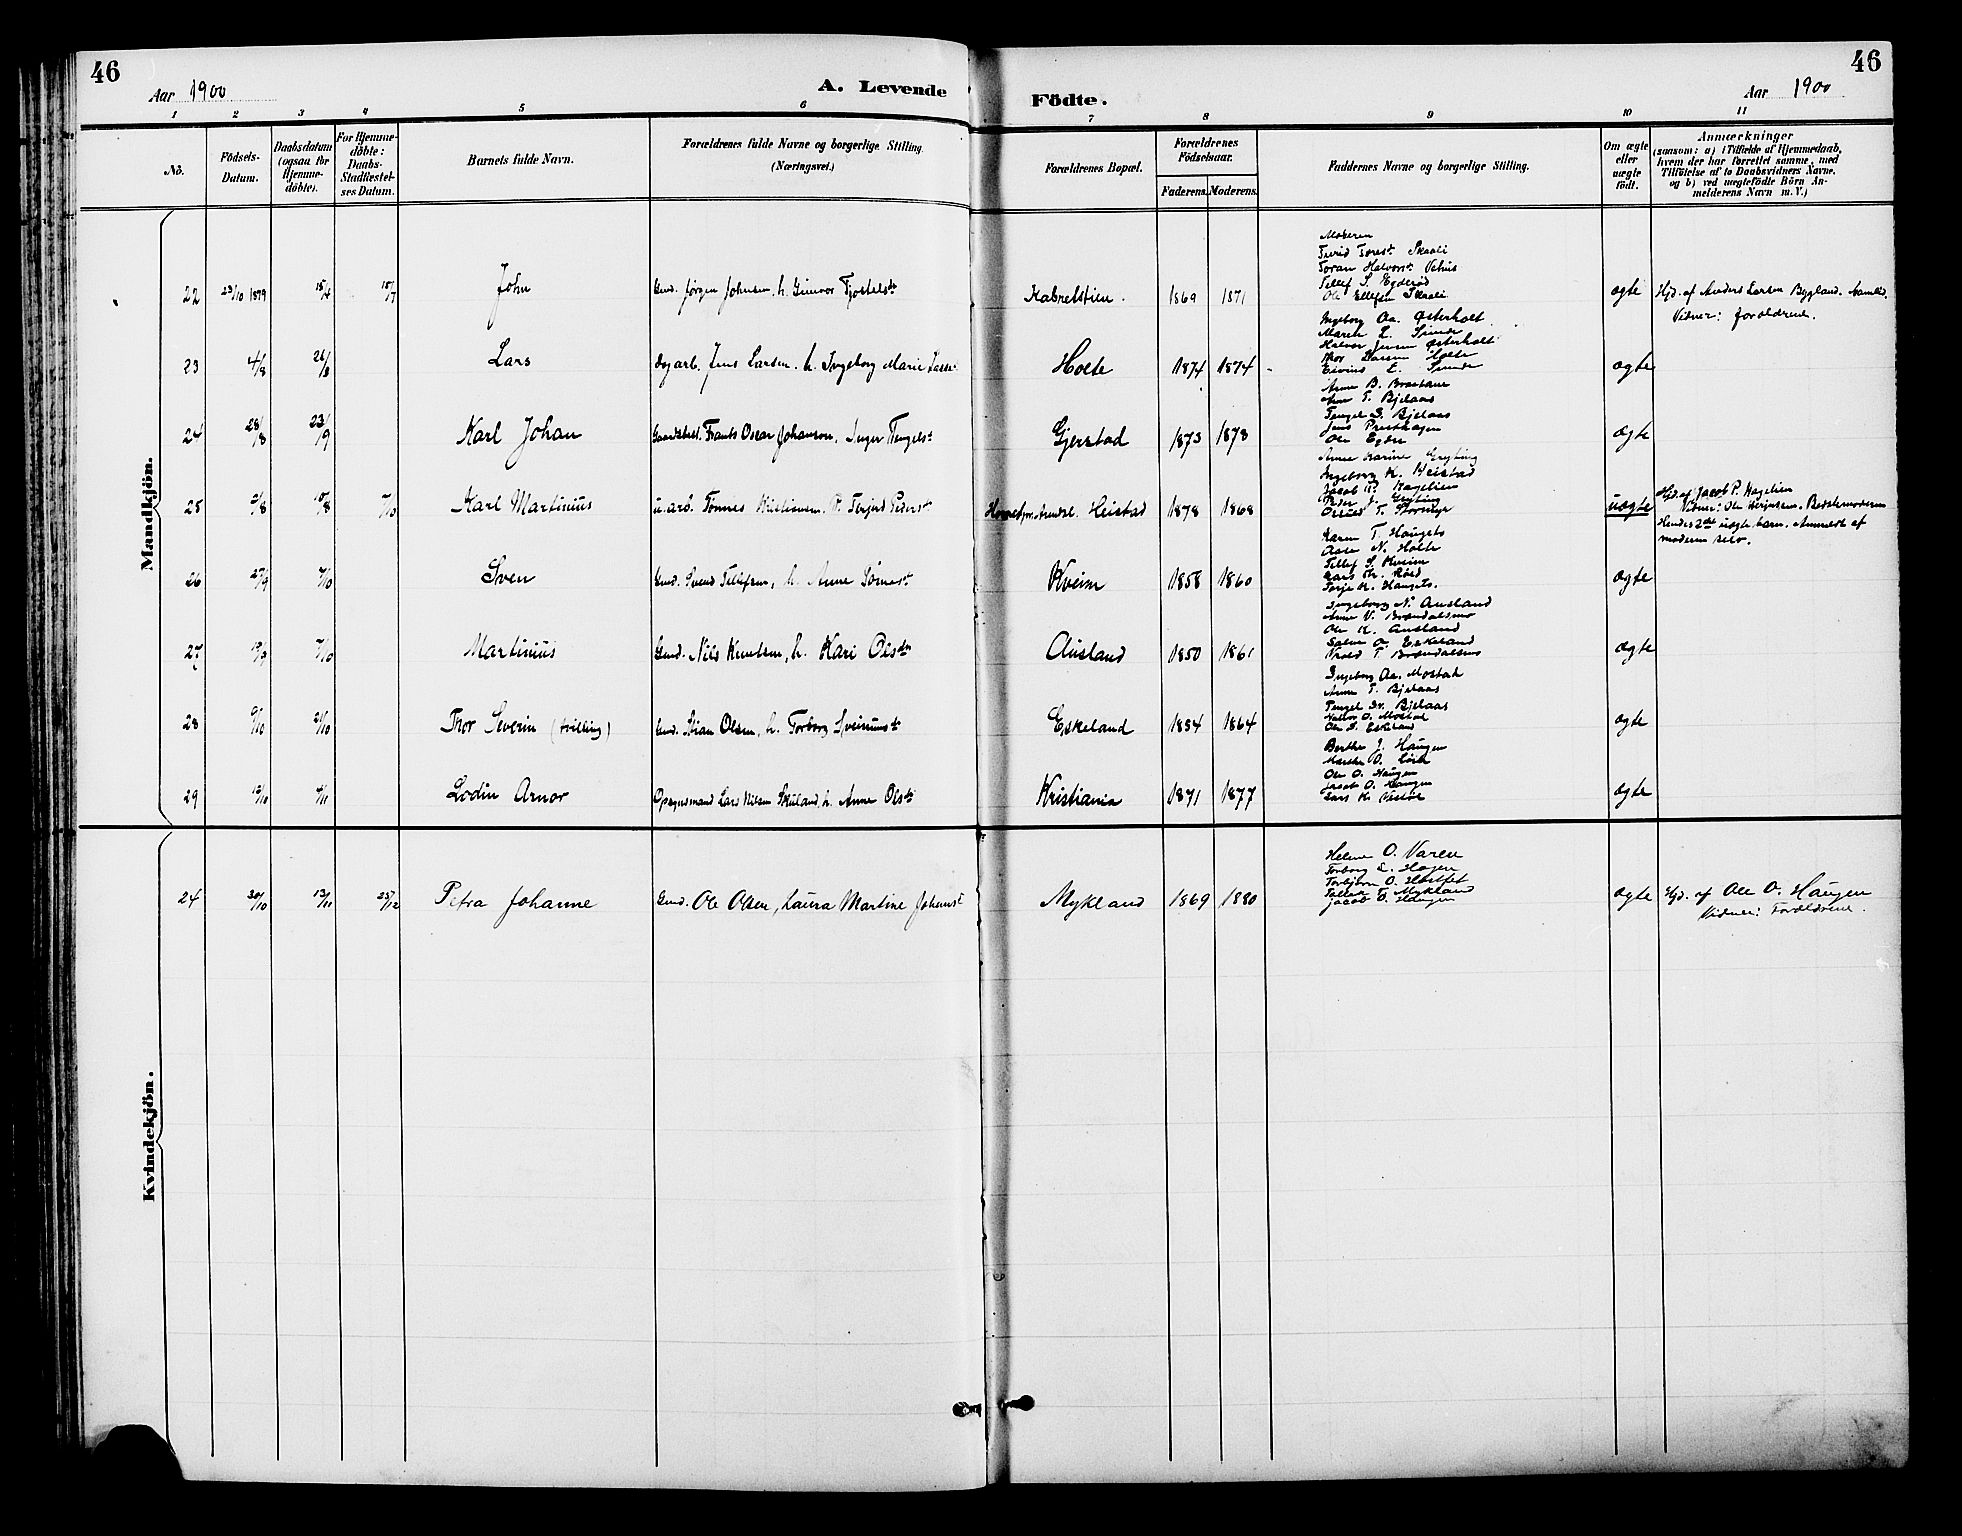 46
Aar 1900
A. Levende
Födte.
Aar 1900
46
1 2 3 4 5 6 7 8 9 10 11
No.
Födsels-Datum.
Daabsdatum (ogsaa for Hjemme-döbte).
For Hjemme-döbte: Daabs-Stadfæstel-ses Datum.
Barnets fulde Navn.
Forældrenes fulde Navne og borgerlige Stilling (Næringsvei.)
Forældrenes Bopæl.
Forældrenes Födselsaar.
Faderens. Moderens.
Faddernes Navne og borgerlige Stilling.
Om ægte eller uægte födt.
Anmærkninger
(saasom: a) i Tilfælde af Hjemmedaab, hvem der har forrettet samme, med Tilföielse af to Daabsvidners Navne, og b) ved uægtefödte Börn An-melderens Navn m. V.)
Mandkjön.
22 23/10 1899 15/4 15/7 John Gmd. Jørgen Johnsen, h. Gunvor Tjostelsdt Kabretstien. 1869 1871 ægte
Moderen
Halvors. Vehus
Tellef S. Egderød
Ole Ellefsen Skaali
Hjd. af Anders Larsen Bygland. Aamlid.
Vidner: forældrene.
23 4/8 26/8 Lars Jens Larsen. h. Ingeborg Marie Holte 1874 1874 ægte
Ingeborg Aa. Østerholt
Halvor Jensen Østerholt
Thor Larsen Holte
24 28/8 23/9 Karl Johan Frants Oscar Johanson, Inger Tengelsdt Gjerstad 1873 1878 ægte
Anne T. Bjelaas
Tengel S. Bjelaas
Jens Presthagen
Ole Egder
25 2/8 10/8 7/10 Karl Martinius u. arb. Tønnes Kristiansen. P. Terjerd Pedersdt Heistad 1878 1868 uægte
Anne Karine Gryting
Ingeborg K. Heistad
Jacob P. Hagelien
Peder J. Gryting
Hjd. af Jacob P. Hagelien
Vidner: Ole Bedstemoderen
Hendes 2det uægte barn. Anmeldt af
moderen selv.
26 27/9 7/10 Sven Gmd. Svend Tellefsen, h. Anne Kveim 1858 1860 ægte
Karen T. Haugets
Aase N. Holte
Tellef S. Kveim
Lars Th. Røed
Terje K. Haugets.
27 19/9 7/10 Martinius Gmd. Nils Knutsen, h. Kari Olsdtr Ausland 1850 1861 ægte
Ingeborg N. Ausland
Anne V. Brændalsmo
Ole K. Ausland
Salve O. Eskeland
T. Brændalsmo
28 9/10 21/10 Thor Severin (tvilling) Gmd. Stian Olsen, h. Torborg Sveinungsdt Eskeland 1854 1864 ægte
Ingeborg Aa. Mostad
Anne T. Bjelaas
Tengel Sv. Bjelaas
O. Mostad
Ole S. Eskeland
29 12/10 4/11 Lodin Arnor Opsynsmand Lars Nilsen Skuland, h. Anne Olsdt Kristiania 1871 1877 ægte
Berthe J. Haugen
Marthe O.
Ole O. Haugen
Jacob O. Haugen
Lars K. Vestøl
Kvindekjön.
24 30/10 13/11 23/12 Petra Johanne Gmd. Ole Olsen, Laura Martine Johnsdt Mykland 1869 1880 ægte
Helene O. Varen
Torborg L. Hagen
Torbjørn O. Hurttet
T. Mykland
Jacob O. Haugen
Hjd. af Ole O. Haugen
Vidner: Forældrene.